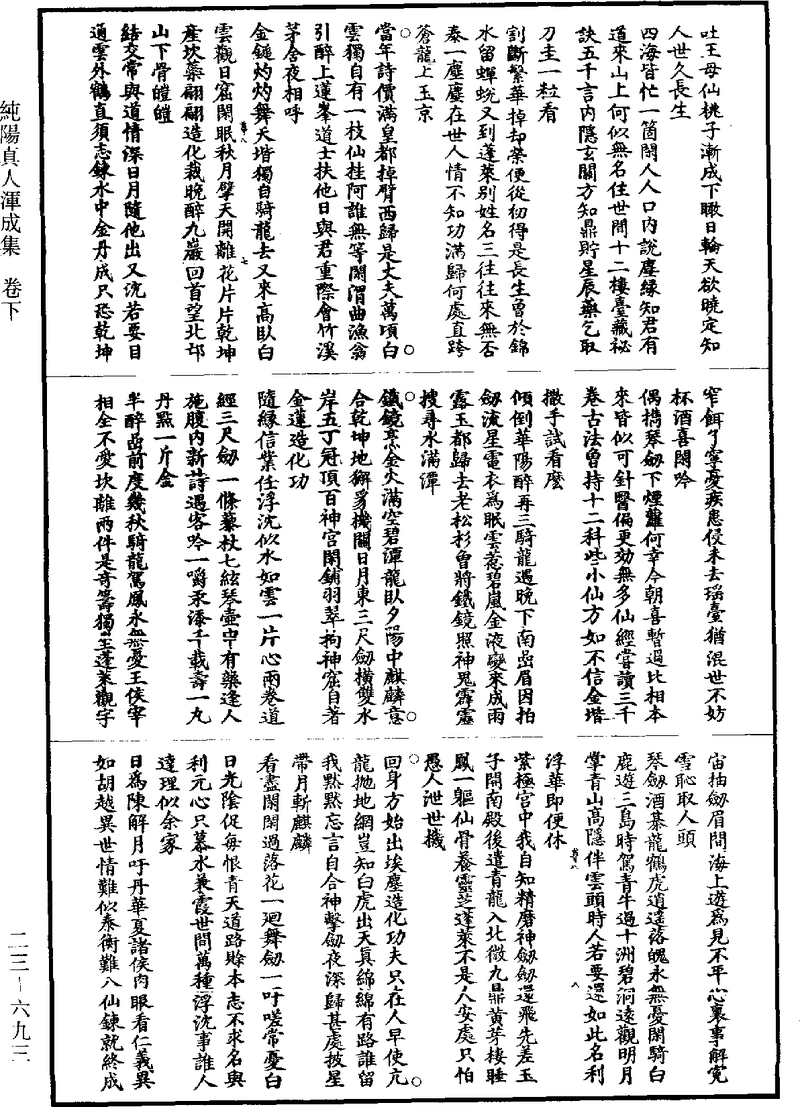 吐王母仙桃子漸成下瞰日輪天欲曉定知
人世久長生
四海皆忙一箇閑人人口內說塵緣知君有
道來山上何似無名住世間十二樓臺藏祕
訣五千言內隱玄關方知鼎貯星辰藥乞取
刀圭一粒看
割斷繁華掉却榮便從初得是長生曾於錦
水留蟬蛻又到蓬萊別姓名三往往來無否
泰一塵塵在世人情不知功滿歸何處直跨
蒼龍上玉京
當年詩價滿皇都掉臂西歸是丈夫萬頃白
雲獨自有一枝仙桂阿誰無等閑渭曲漁翁
引醉上蓮峯道士扶他日與君重際會竹溪
茅舍夜相呼
金鎚灼灼舞天堦獨自騎龍去又來高臥白
雲觀日窟閑眠秋月擘天開離花片片乾坤
產坎藥翩翩造化栽晚醉九巖回首望北邙
山下骨皚皚
結交常與道情深日月隨他出又沉若要自
通雲外鶴直須志鍊水中金丹成只恐乾坤
窄餌了寧憂疾患侵未去瑶臺猶混世不妨
杯酒喜閑吟
偶𢹂琴劒下煙蘿何幸今朝喜暫過比相本
來皆似可針醫偏更効無多仙經嘗讀三千
卷古法曾持十二科些小仙方如不信金堦
撒手試看麼
傾倒華陽醉再三騎龍遇晚下南嵒眉因拍
劒流星電衣為眠雲惹碧嵐金液變來成雨
露玉都歸去老松杉曾將鐵鏡照神鬼霹靂
搜尋水滿潭
鐵鏡烹金火滿空碧潭龍臥夕陽中麒麟意
合乾坤地獬豸機關日月東三尺劒橫雙水
岸五丁冠頂百神宮閑鋪羽翠拘神窟自著
金蓮造化功
隨緣信業任浮沈似水如雲一片心兩卷道
經三尺劒一條藜杖七絃琴壺中有藥逢人
施腹內新詩遇客吟一嚼汞添千載壽一丸
丹點一斤金
半醉嵒前度幾秋騎龍駕鳳永無憂王侯宰
相全不愛坎離兩件是奇籌獨坐蓬萊觀宇
宙抽劒眉間海上遊為見不平心裏事解寃
雪恥取人頭
琴劒酒棊龍鶴虎逍遙落魄永無憂閑騎白
鹿遊三島時駕青牛過十洲碧洞遠觀明月
掌青山高隱伴雲頭時人若要還如此名利
浮華即便休
紫極宮中我自知精磨神劒劒還飛先差玉
子開南殿後遣青龍入北微九鼎黄芽棲睡
鳳一軀仙骨養靈芝蓬萊不是人安處只怕
愚人泄世機
回身方始出埃塵造化功夫只在人早使亢
龍拋地網豈知白虎出天真綿綿有路誰留
我默默忘言自合神擊劒夜深歸甚處披星
帶月斬麒麟
看盡閑閑過落花一廻舞劒一吁嗟常憂白
日光陰促每恨青天道路賒本志不求名與
利元心只慕水兼霞世間萬種浮沈事誰人
達理似余家
日為陳解月吁丹華夏諸侯肉眼看仁義異
如胡越異世情難似泰衡難八仙鍊就終成
純陽真人渾成集　卷下
二三—六九三